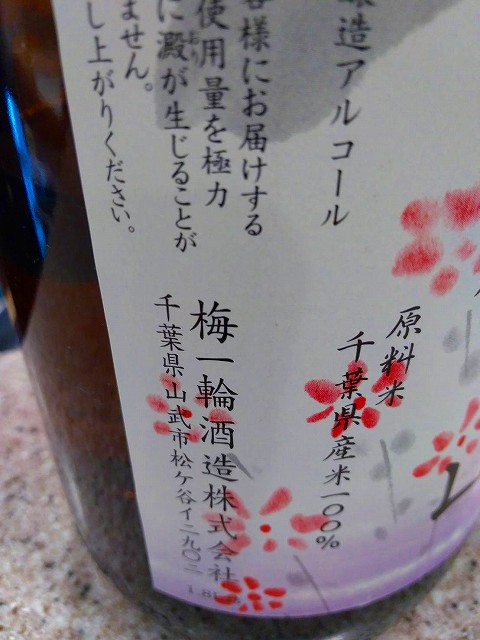 醸造アルコール
客様にお届けする
使用量を極力
に澱が生じることが
ません。
し上がりください。
原料米
千葉県産米一〇〇%
梅一輪酒造株式会社
千葉県山武市松ケ谷イ二九〇二